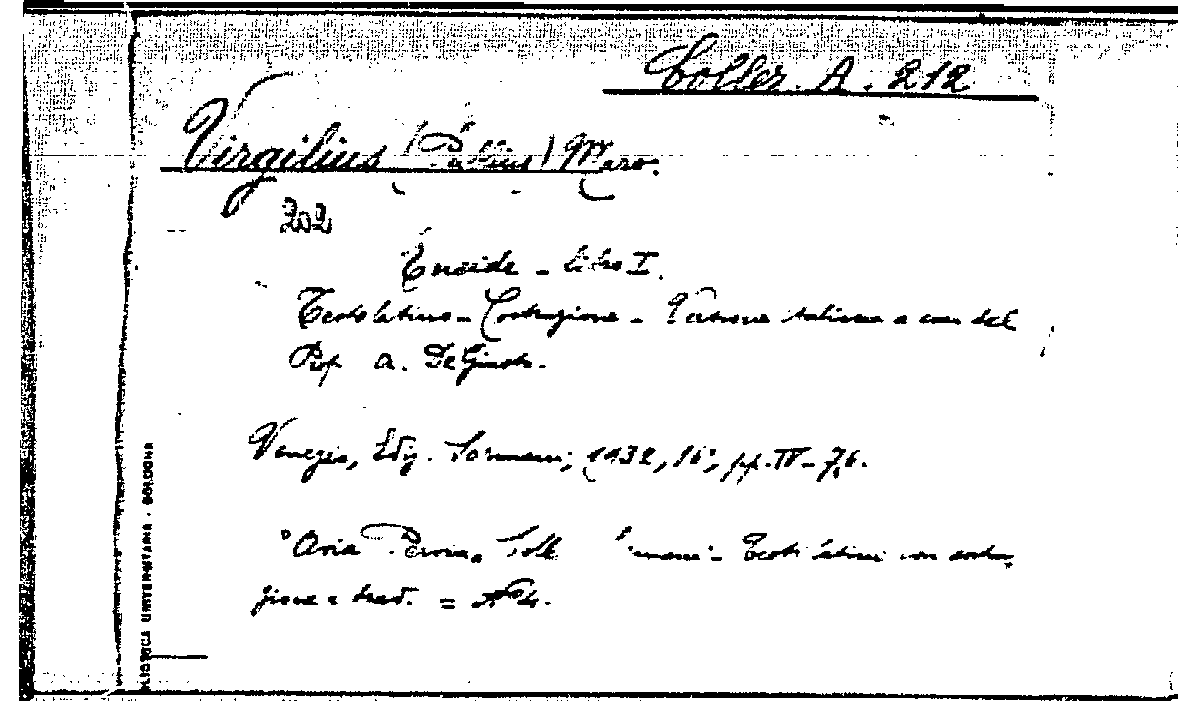 Collez. A. 212
Virgilius (Publius) Maro.
202
Eneide - libro I.
Testo latino - Costruzione - Versione italiana a cura del
Prof. A. De
Venezia, Ediz. 1932, 16°, pp. IV-76.
"Aria Coll. - Testi latini con costru
zione e trad. = N° 4.
BIBLIOTECA UNIVERSITARIA - BOLOGNA